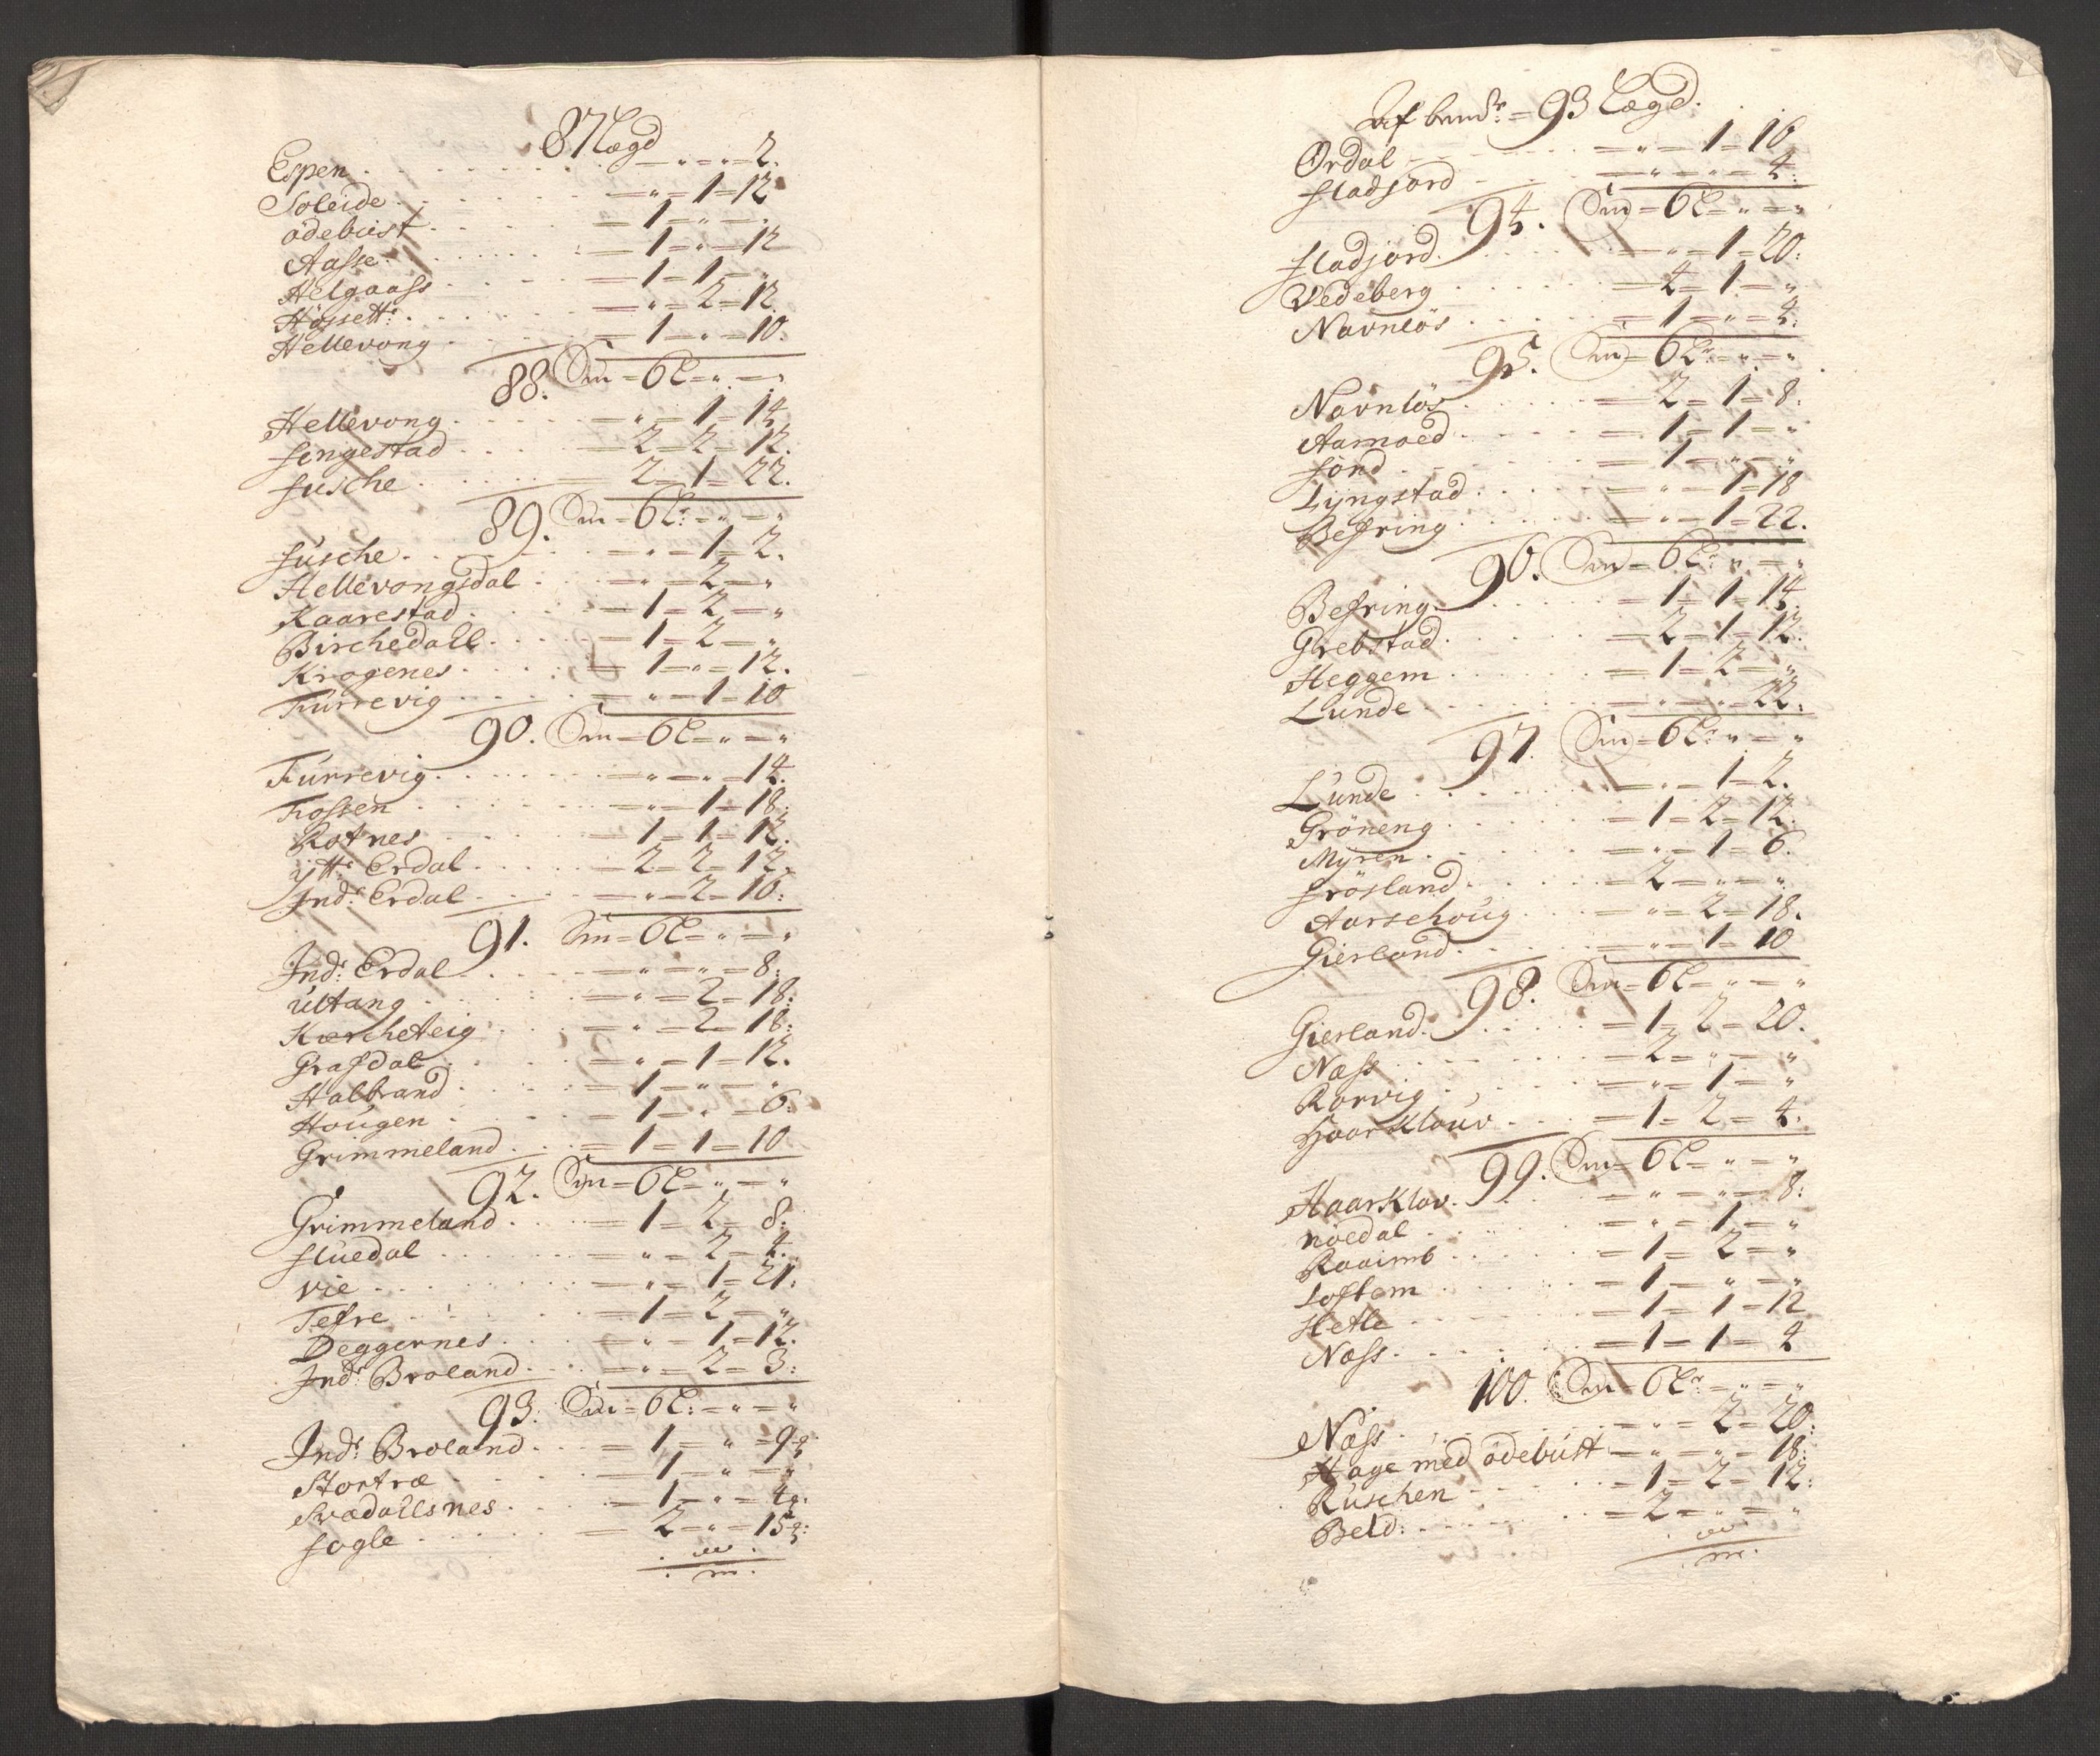 87 Lægd
Espen . . . . . — „ = „ = 2.
Soleide . . . . — „ = 1 = 12
ödebust . . . . = 1 = „ = .
Aasse . . . . . = 1 = „ = 12
Helgaass . . . . = 1 = 1 = „
Höjsett: . . . . = „ = 2 = 12.
Hellevong . . . . = 1 = „ = 10.
88. Sm = 6 L = „ = „
Hellevong . . . . = „ = 1 = 14.
fengestad . . . . 2 = 2 = 12.
fusche . . . . . = 2 = 1 = 22.
89. Sm = 6 L: = „ = „
fusche . . . . . = „ = 1 = 2.
Hellevongsdal . . = „ = 2 = „
Kaarestad . . . . = 1 = 2 = „
Birchedall . . . . = 1 = 2 = „
Krogenes . . . . = 1 = „ = 12.
Furrevig . . . . = „ = 1 = 10
90. Sm = 6 L = „ = „
Furrevig . . . . = „ = „ = 14.
Fossen . . . . . = „ = 1 = 18.
Rotnes . . . . . = 1 = 1 = 12.
ytt: Erdal . . . . = 2 = 2 = 12.
Indr: Erdal . . . = „ = 2 = 16:
91. Sm = 6 L = „ = „
Indr: Erdal . . . = „ = „ = 8:
Ultang . . . . . = „ = 2 = 18:
Kærcheteig . . . = „ = 2 = 18:
Grafdal . . . . . = „ = 1 = 12.
Halbrand . . . . = 1 = „ = „
Hougen . . . . . = 1 = „ = 6:
Grimmeland . . . = 1 = 1 = 10
92. Sm = 6 L = „ = „
Grimmeland . . . = 1 = 2 = 8:
fluedal . . . . . = „ = 2 = 4.
vie . . . . . . = „ = 1 = 21:
Tefre . . . . . = 1 = 2 = „
Deggernes . . . . = „ = 1 = 12.
Indr Broland . . . = „ = 2 = 3:
93. Sm = 6 L: = „ = „
Indr: Broland . . . = 1 = „ = 9
Stortræ . . . . . = 1 = „ = „
Svædallsnes . . . = 1 = „ = 4
fogle . . . . . = 2 = „ = 15
Af 93 Lægd.
Ørdal . . . . . = „ = 1 = 16
fladjord . . . . = „ = „ = 4:
94. Sm = 6 L = „ = „
fladjord . . . . = „ = 1 = 20:
Vedeberg . . . . = 4 = 1 = „
Navnlös . . . . . = 1 = „ = 4:
95. Sm = 6 L: = „ = „
Navnlös . . . . . = 2 = 1 = 8:
Aamoed . . . . . = 1 = 1 = „
fönd . . . . . . = 1 = „ = „
Lyngstad . . . . = „ = 1 = 18
Befring . . . . . = „ = 1 = 22.
96. Sm = 6 L: = „ = „
Befring . . . . . = 1 = 1 = 14.
Grebstad . . . . = 2 = 1 = 12.
Heggem . . . . . = 1 = 2 = „
Lunde . . . . . = „ = „ = 22:
97. Sm = 6 L: = „ = „
Lunde . . . . . = „ = 1 = 2.
Gröneng . . . . . = 1 = 2 = 12.
Myren . . . . . = „ = 1 = 6.
frösland . . . . = 2 = „ = „
Aarsehoug . . . . = „ = 2 = 18.
Gierland . . . . = „ = 1 = 10
98. Sm = 6 L = „ = „
Gierland . . . . = 1 = 2 = 20.
Næss . . . . . . = 2 = „ = „
Rørvig . . . . . = „ = 1 = „
Haarklouv . . . . = 1 = 2 = 4.
99. Sm = 6 L = „ = „
Haarklov . . . . = „ = „ = 8:
nöedal . . . . . = „ = 1 = „
Raaimb . . . . . = 1 = 2 = „
Loftem . . . . . = 1 = „ = „
Hetle . . . . . = 1 = 1 = 12
Næss . . . . . . = 1 = 1 = 4
100. Sm = 6 L: = „ = „
Næss . . . . . . = „ = 2 = 20:
Hage med ödebust = „ = „ = 18:
Ruschen . . . . . = 1 = 2 = 12:
Beld: . . . . . = 2 = „ = „